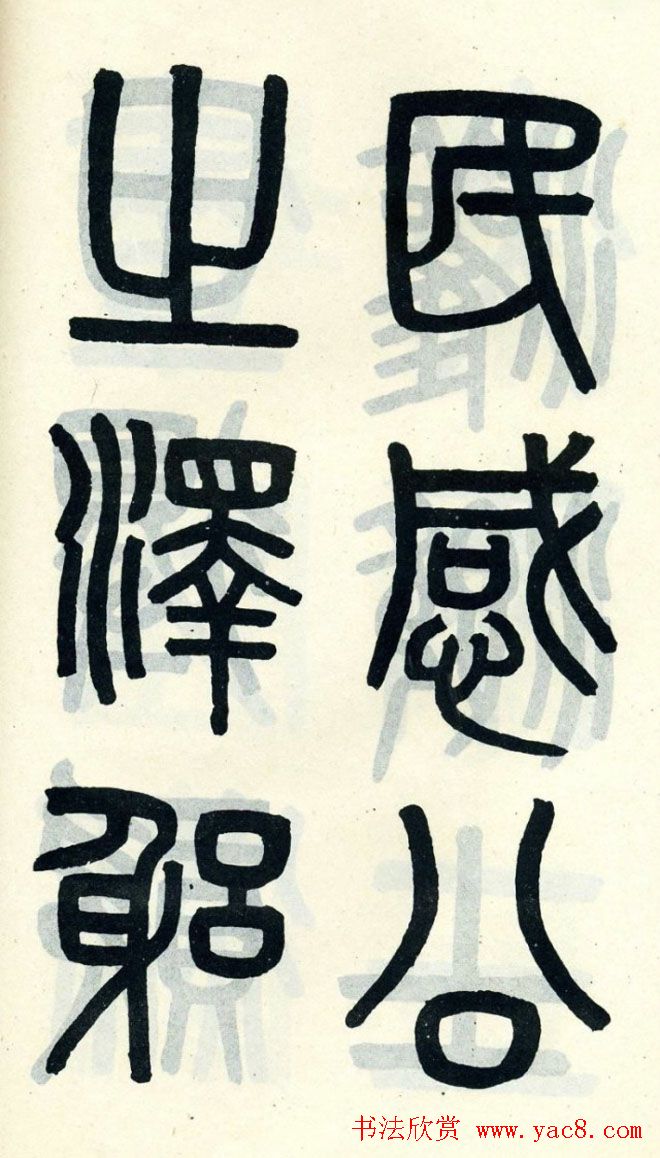 民感公
之澤躳
书法欣赏 www.yac8.com